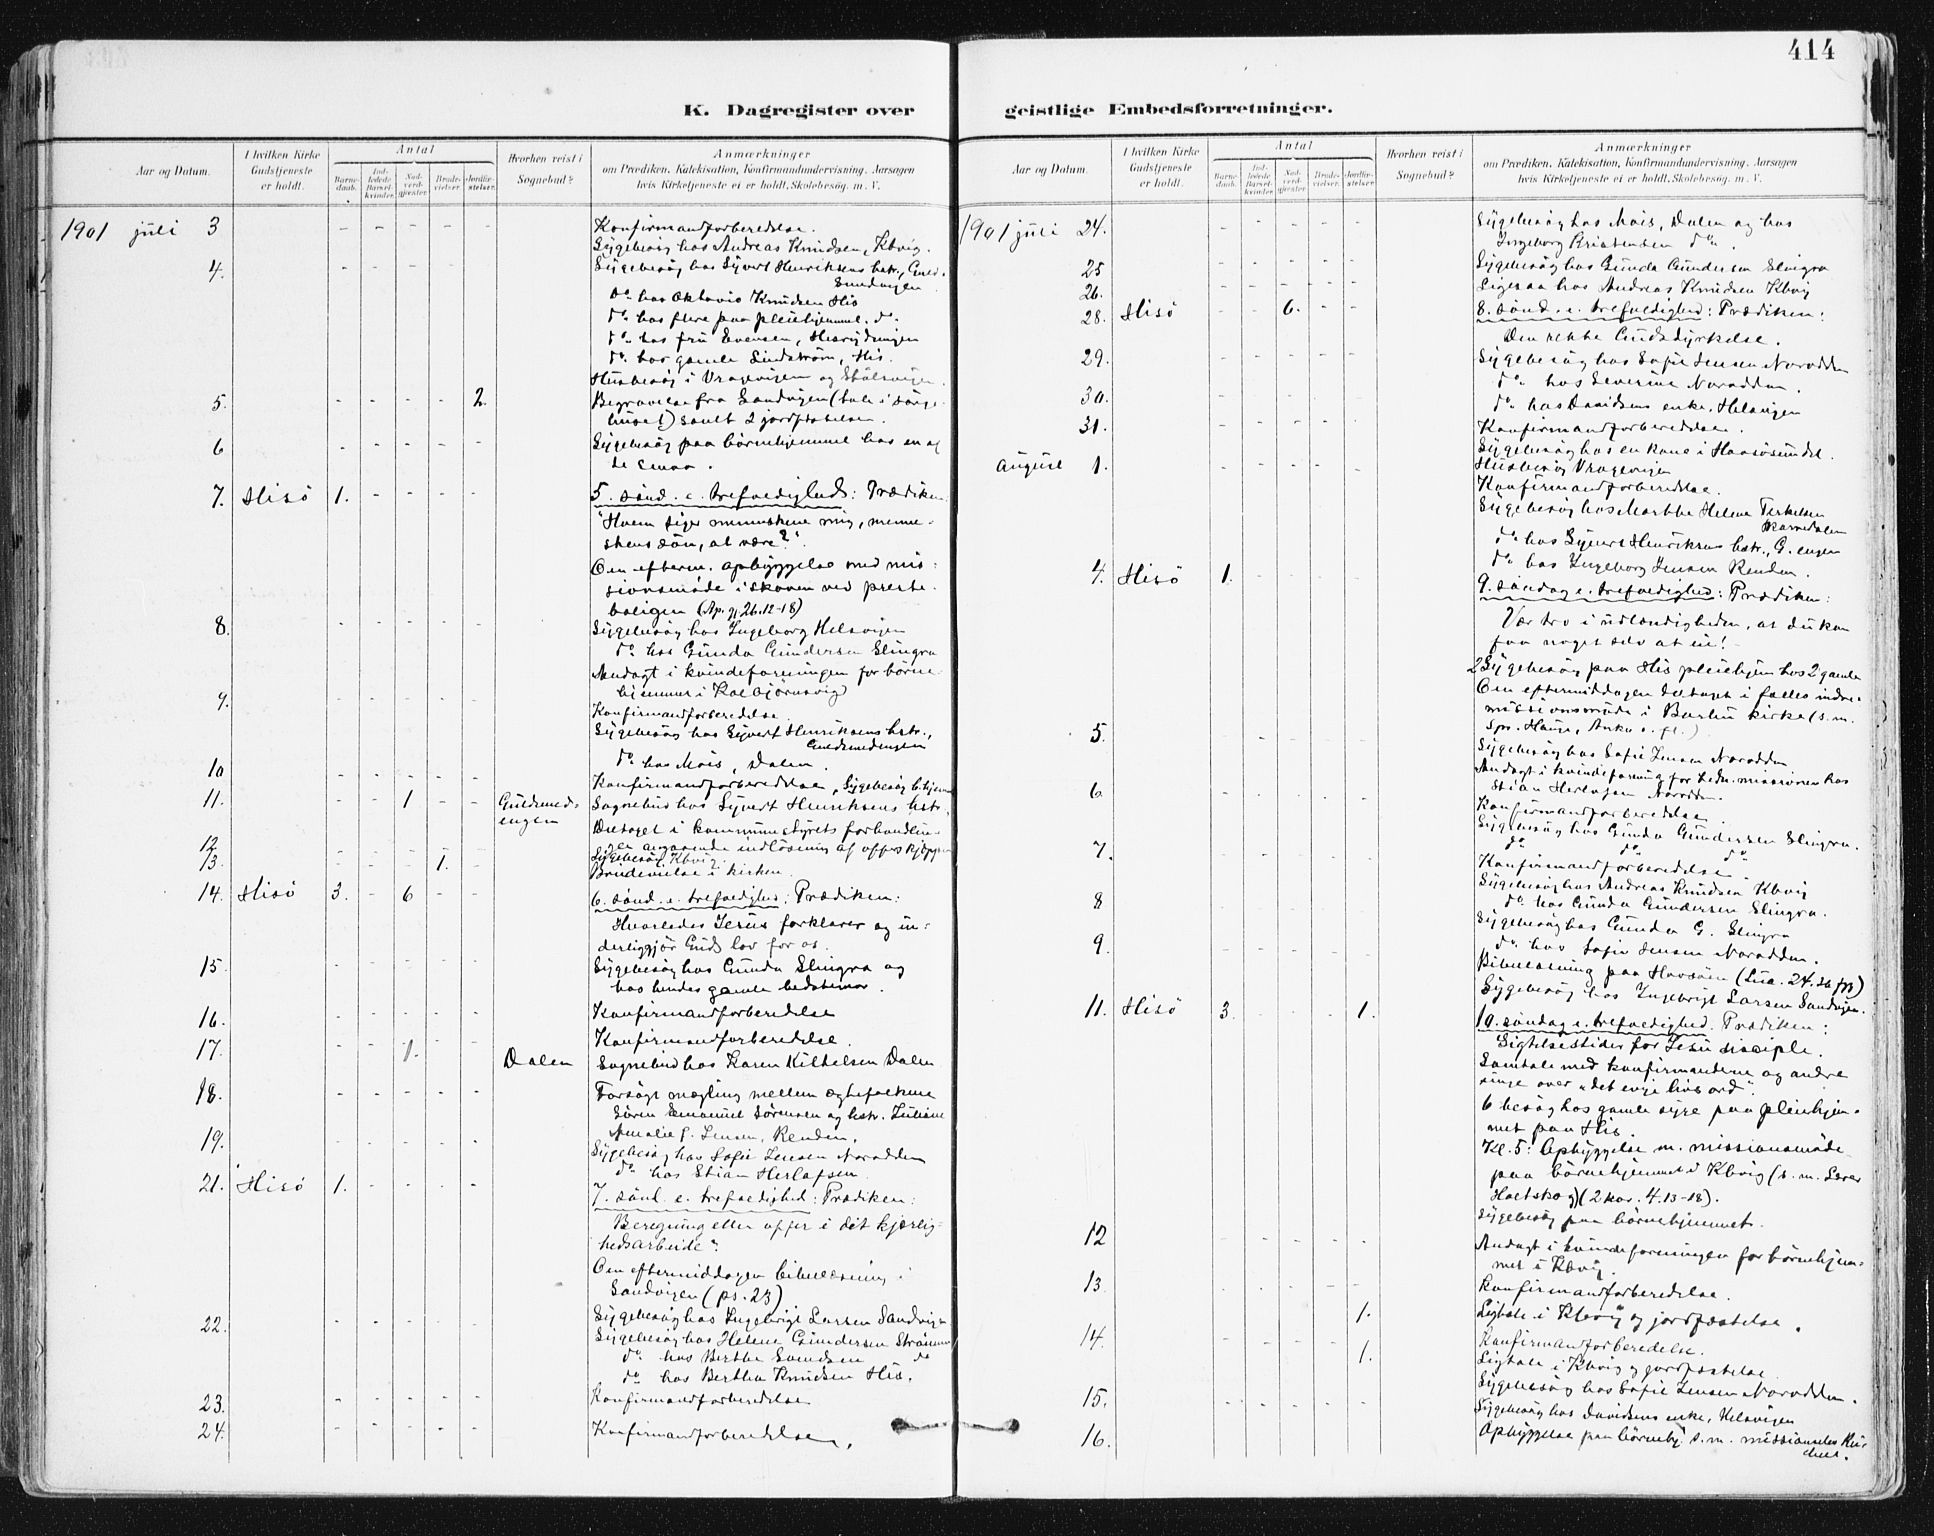 414
K. Dagregister over
geistlige Embedsforretninger.
Aar og Datum.
I hvilken Kirke Gudstjeneste er holdt.
Antal
Barnedaab.
Indledede Barselkvinder.
Nadverdgjæster.
Brudevielser.
Jordfæstelser.
Hvorhen reist i Sognebud?
Anmærkninger
om Prædiken, Katekisation, Konfirmandundervisning, Aarsagen
hvis Kirketjeneste ei er holdt, Skolebesøg, m. V.
1901 juli 3 - - - - - Konfirmandforberedelse.
Sygebesøg hos Andreas Knudsen, Kbvig.
4. - - - - - Sygebesøg hos Syvert Henriksens hstr., Guld-
smedengen
do. hos Oktavis Knudsen His
do. hos flere paa pleiehjemmet. do.
do. hos fru Evensen,
do. hos gamle Lindstrøm, His.
Husbesøg i Vragevigen og
5. - - - - 2. Begravelse fra Sandvigen (tale i sørge-
huset) samt 2 jordfæstelser.
6 - - - - - Sygebesøg paa børnehjemmet hos en af
de smaa.
7. Hisö 1. - - - - 5. sønd. e. trefoldighed: Prædiken
"Hvem siger menneskene mig, menne-
skens søn, at være?"
Om efterm. opbyggelse med mis-
sionsmøde i skoven ved preste-
boligen (Ap. gj. 26.12-18)
8. - - - - - Sygebesøg hos Ingeborg Helsvigen
do. hos Gunda Gundersen Slingra
Andagt i kvindeforeningen for børne-
hjemmet i Kolbjørnsvig
9. - - - - - Konfirmandforberedelse
Sygebesøg hos Syvert Henriksens hstr.,
Guldsmedengen
do. hos Mois, Dalen.
10 - - - - - Konfirmandforberedelse, Sygebesøg b.hjem
11. - - 1 - - Guldsmeds- Sognebud hos Syvert Henriksens hstr.
engen
Deltaget i kommunestyrets forhandlin-
ger angaaende indløsning af offer
12 - - - - - Sygebesøg Kbvig.
13. - - - 1. - Brudevielse i kirken.
14. Hisö 3. - 6 - - 6. sønd. e. trefoldighed: Prædiken:
Hvorledes Jesus forklarer og in-
derliggjør Guds lov for os.
15 - - - - - Sygebesøg hos Gunda Slingra og
hos hendes gamle bedstemor.
16. - - - - - Konfirmandforberedelse
17. - - 1. - - Konfirmandforberedelse.
Dalen Sognebud hos Karen Kittelsen Dalen
18. - - - - - Forsøgt mægling mellem ægtefolkene
Søren Emanuel Sørensen og hstr. Juliane
Amalie f. Jensen, Renden.
19. - - - - - Sygebesøg hos Sofie Jensen Narodden
do. hos Stian Herlofsen
21. Hisö 1. - - - - 7. sønd. e. trefoldighed: Prædiken:
Beregning eller offer i det kjærlig-
hedsarbeide".
Om eftermiddagen bibellæsning i
Sandvigen (ps. 23)
22. - - - - - Sygebesøg hos Ingebrigt Larsen Sandvigen
Sygebesøg hos Helene Gundersen Strømmen
do. hos Berthe Svendsen do
do. hos Bertha Knudsen His.
23. - - - - - Konfirmandforberedelse
24. - - - - - Konfirmandforberedelse.
Aar og Datum.
I hvilken Kirke Gudstjeneste er holdt.
Antal
Barnedaab.
Indledede Barselkvinder.
Nadverdgjæster.
Brudevielser.
Jordfæstelser.
Hvorhen reist i Sognebud?
Anmærkninger
om Prædiken, Katekisation, Konfirmandundervisning, Aarsagen
hvis Kirketjeneste ei er holdt, Skolebesøg, m. V.
1901 juli 24. - - - - - Sygebesøg hos Mois, Dalen og hos
Ingeborg Kristensen do.
25 - - - - - Sygebesøg hos Gunda Gundersen Slingra
26. - - - - - Ligesaa hos Andreas Knudsen Kbvig
28. Hisö - - 6. - - 8. sønd. e. trefoldighed: Prædiken:
Den rette Gudsdyrkelse.
29. - - - - - Sygebesøg hos Sofie Jensen Narodden
do. hos Severine Narodden.
30. - - - - - do. hos Davidsens enke, Helsvigen
31. - - - - - Konfirmandforberedelse.
Sygebesøg hos en kone i Havsøsundet.
august 1. - - - - - Husbesøg Vragevigen
Konfirmandforberedelse.
Sygebesøg hos Marthe Helene Terkelsen
do. hos Syvert Henriksens hstr., G. engen
do. hos Ingeborg Jensen Renden.
4. Hisö 1. - - - - 9. søndag e. trefoldighed: Prædiken:
Vær tro i udlændigheden, at du kan
faa noget selv at eie!
2 Sygebesøg paa His pleiehjem hos 2 gamle
Om eftermiddagen deltaget i fælles indre-
missionsmøde i Barbu kirke (s. m.
Spr. Hauge, Anker o. fl.)
5. - - - - - Sygebesøg hos Sofie Jensen Narodden
Andagt i kvindeforening for hedn. missionen hos
Stian Herlofsen Narodden.
6 - - - - - Konfirmandforberedelse.
Sygebesøg hos Gunda Gundersen Slingra.
7. - - - - - do. do. do.
Konfirmandforberedelse.
Sygebesøg hos Andreas Knudsen Kbvig
8 - - - - - do. hos Gunda Gundersen Slingra.
Sygebesøg hos Gunda G. Slingra
9. - - - - - do. hos Sofie Jensen Narodden.
Bibellæsning paa Havsøen (Luc. 24.36 fg)
Sygebesøg hos Ingebrigt Larsen Sandvigen.
11. Hisö 3. - - - 1. 10. søndag e. trefoldighed. Prædiken:
Sigtelsestider for Jesu disciple.
Samtale med konfirmanderne og andre
unge over "det evige livs ord".
6 besøg hos gamle syge paa pleiehjem-
met paa His.
Kl. 5: Opbyggelse m. missionsmøde
paa børnehjemmet Kbvig (s. m.
(2 kor. 4.13-18).
Sygebesøg paa børnehjemmet.
12 - - - - - Andagt i kvindeforeningen for børnehjem-
met i Kbvig.
13. - - - - - Konfirmandforberedelse.
1. Ligtale i Kbvig og jordfæstelse.
14. - - - - - Konfirmandforberedelse.
1. Ligtale i Kbvig og jordfæstelse
15. - - - - - Sygebesøg hos Sofie Jensen Narodden.
Sygebesøg hos Davidsens enke, Helsvigen
16. - - - - - Opbyggelse paa børnehj. s. m.